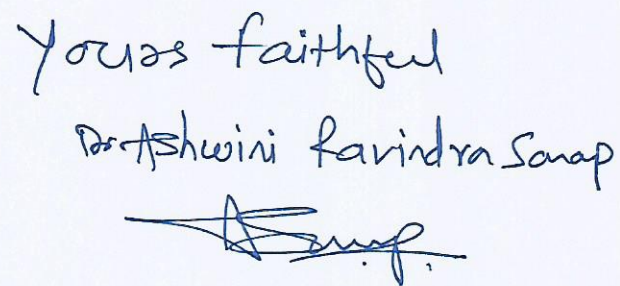 Yours faithful
Dr. Ashwini Ravindra Sanap
ASanap.